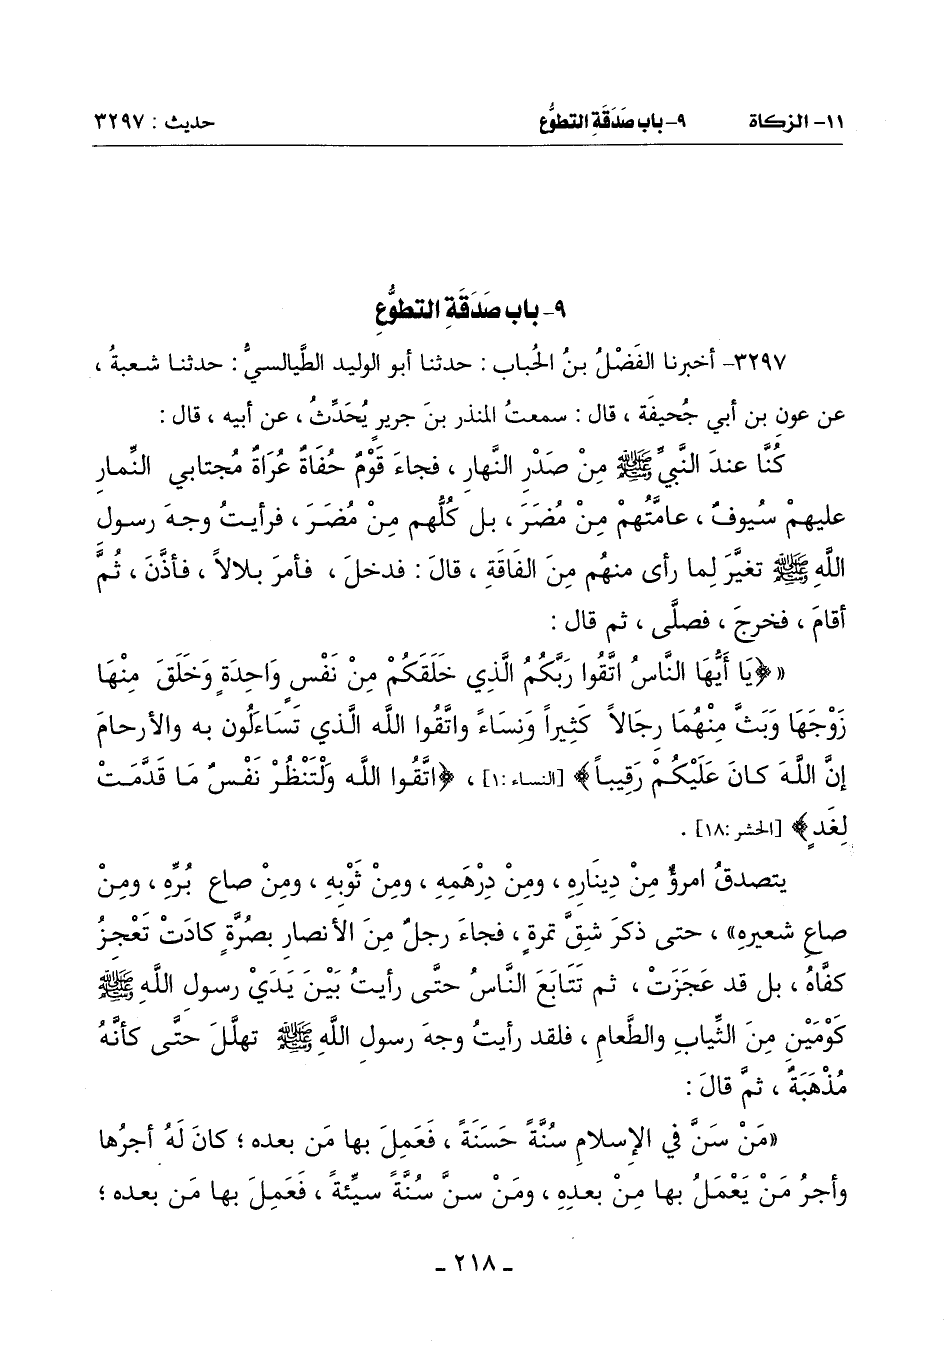 ١١- الزكاة ٩- باب صَدَقَةِ التطوُّع حديث : ٣٢٩٧
٩- باب صَدَقَةِ التطوُّعِ
٣٢٩٧- أخبرنا الفَضْلُ بنُ الحُباب : حدثنا أبو الوليد الطَّيالسيُّ : حدثنا شعبةُ ،
عن عون بن أبي جُحيفَة ، قال : سمعتُ المنذر بنَ جريرٍ يُحَدِّثُ ، عن أبيه ، قال :
كُنَّا عندَ النَّبيِّ ﷺ مِنْ صَدْرِ النَّهار ، فجاءَ قَوْمٌ حُفَاةٌ عُرَاةٌ مُجتابي النِّمارِ
عليهمْ سُيوفٌ ، عامَّتُهمْ مِنْ مُضَرَ ، بل كُلُّهم مِنْ مُضَرَ ، فرأيتُ وجهَ رسول
اللَّهِ ﷺ تغيَّرَ لِما رأى منهُم مِنَ الفَاقَةِ ، قالَ : فدخلَ ، فأمرَ بلالاً ، فأذَّنَ ، ثُمَّ
أقامَ ، فخرجَ ، فصلَّى ، ثم قال :
«﴿يَا أَيُّهَا النَّاسُ اتَّقُوا رَبَّكُمُ الَّذِي خَلَقَكُمْ مِنْ نَفْسٍ وَاحِدَةٍ وَخَلَقَ مِنْهَا
زَوْجَهَا وَبَثَّ مِنْهُمَا رِجَالاً كَثِيراً وَنِسَاءً واتَّقُوا اللَّه الَّذي تَسَاءَلُون به والأرحامَ
إنَّ اللَّهَ كانَ عَلَيْكُمْ رَقِيباً﴾ [النساء :١] ، ﴿اتَّقُوا اللَّه وَلْتَنْظُرْ نَفْسٌ مَا قَدَّمَتْ
لِغَدٍ﴾ [الحشر :١٨] .
يتصدقُ امرؤٌ مِنْ دِينَارِهِ ، ومِنْ دِرْهَمِهِ ، ومِنْ ثَوْبِهِ ، ومِنْ صاعِ بُرِّهِ ، ومِنْ
صاعِ شعيرهِ» ، حتى ذكرَ شِقَّ تمرةٍ ، فجاءَ رجلٌ مِنَ الأنصار بصُرَّةٍ كادَتْ تَعْجِزُ
كفَّاهُ ، بل قد عَجَزَتْ ، ثم تَتَابَعَ النَّاسُ حتَّى رأيتُ بَيْنَ يَدَيْ رسول اللَّهِ ﷺ
كَوْمَيْنِ مِنَ الثِّيابِ والطَّعامِ ، فلقد رأيتُ وجهَ رسول اللَّهِ ﷺ تهلَّلَ حتَّى كأنَّهُ
مُذْهَبَةٌ ، ثمَّ قالَ :
«مَنْ سَنَّ في الإسلامِ سُنَّةً حَسَنَةً ، فَعَمِلَ بها مَن بعده ؛ كانَ لَهُ أجرُها
وأجرُ مَنْ يَعْمَلُ بها مِنْ بعدِهِ ، ومَنْ سنَّ سُنَّةً سيِّئةً ، فَعَمِلَ بها مَن بعده ؛
ـ ٢١٨ ـ